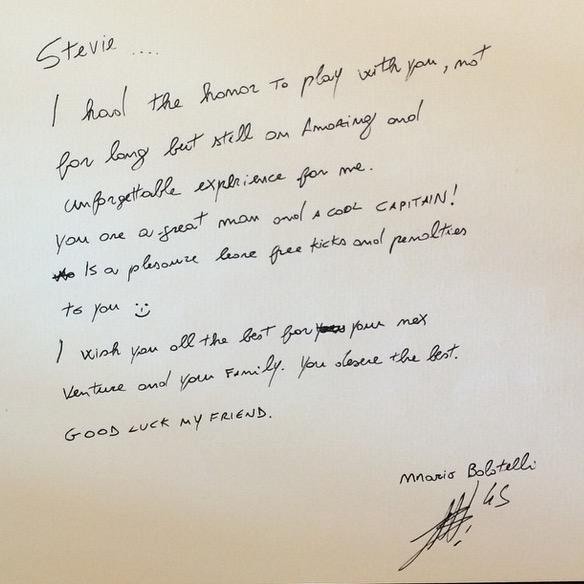 Stevie ....
I had the honor to play with you, not
for long but still an Amazing and
unforgettable experience for me.
You are a great man and a COOL CAPITAIN!
Is a pleasure leave free kicks and penalties
to you :)
I wish you all the best for your nex
venture and your Family. You deserve the best.
GOOD LUCK MY FRIEND.
Mario Balotelli
45